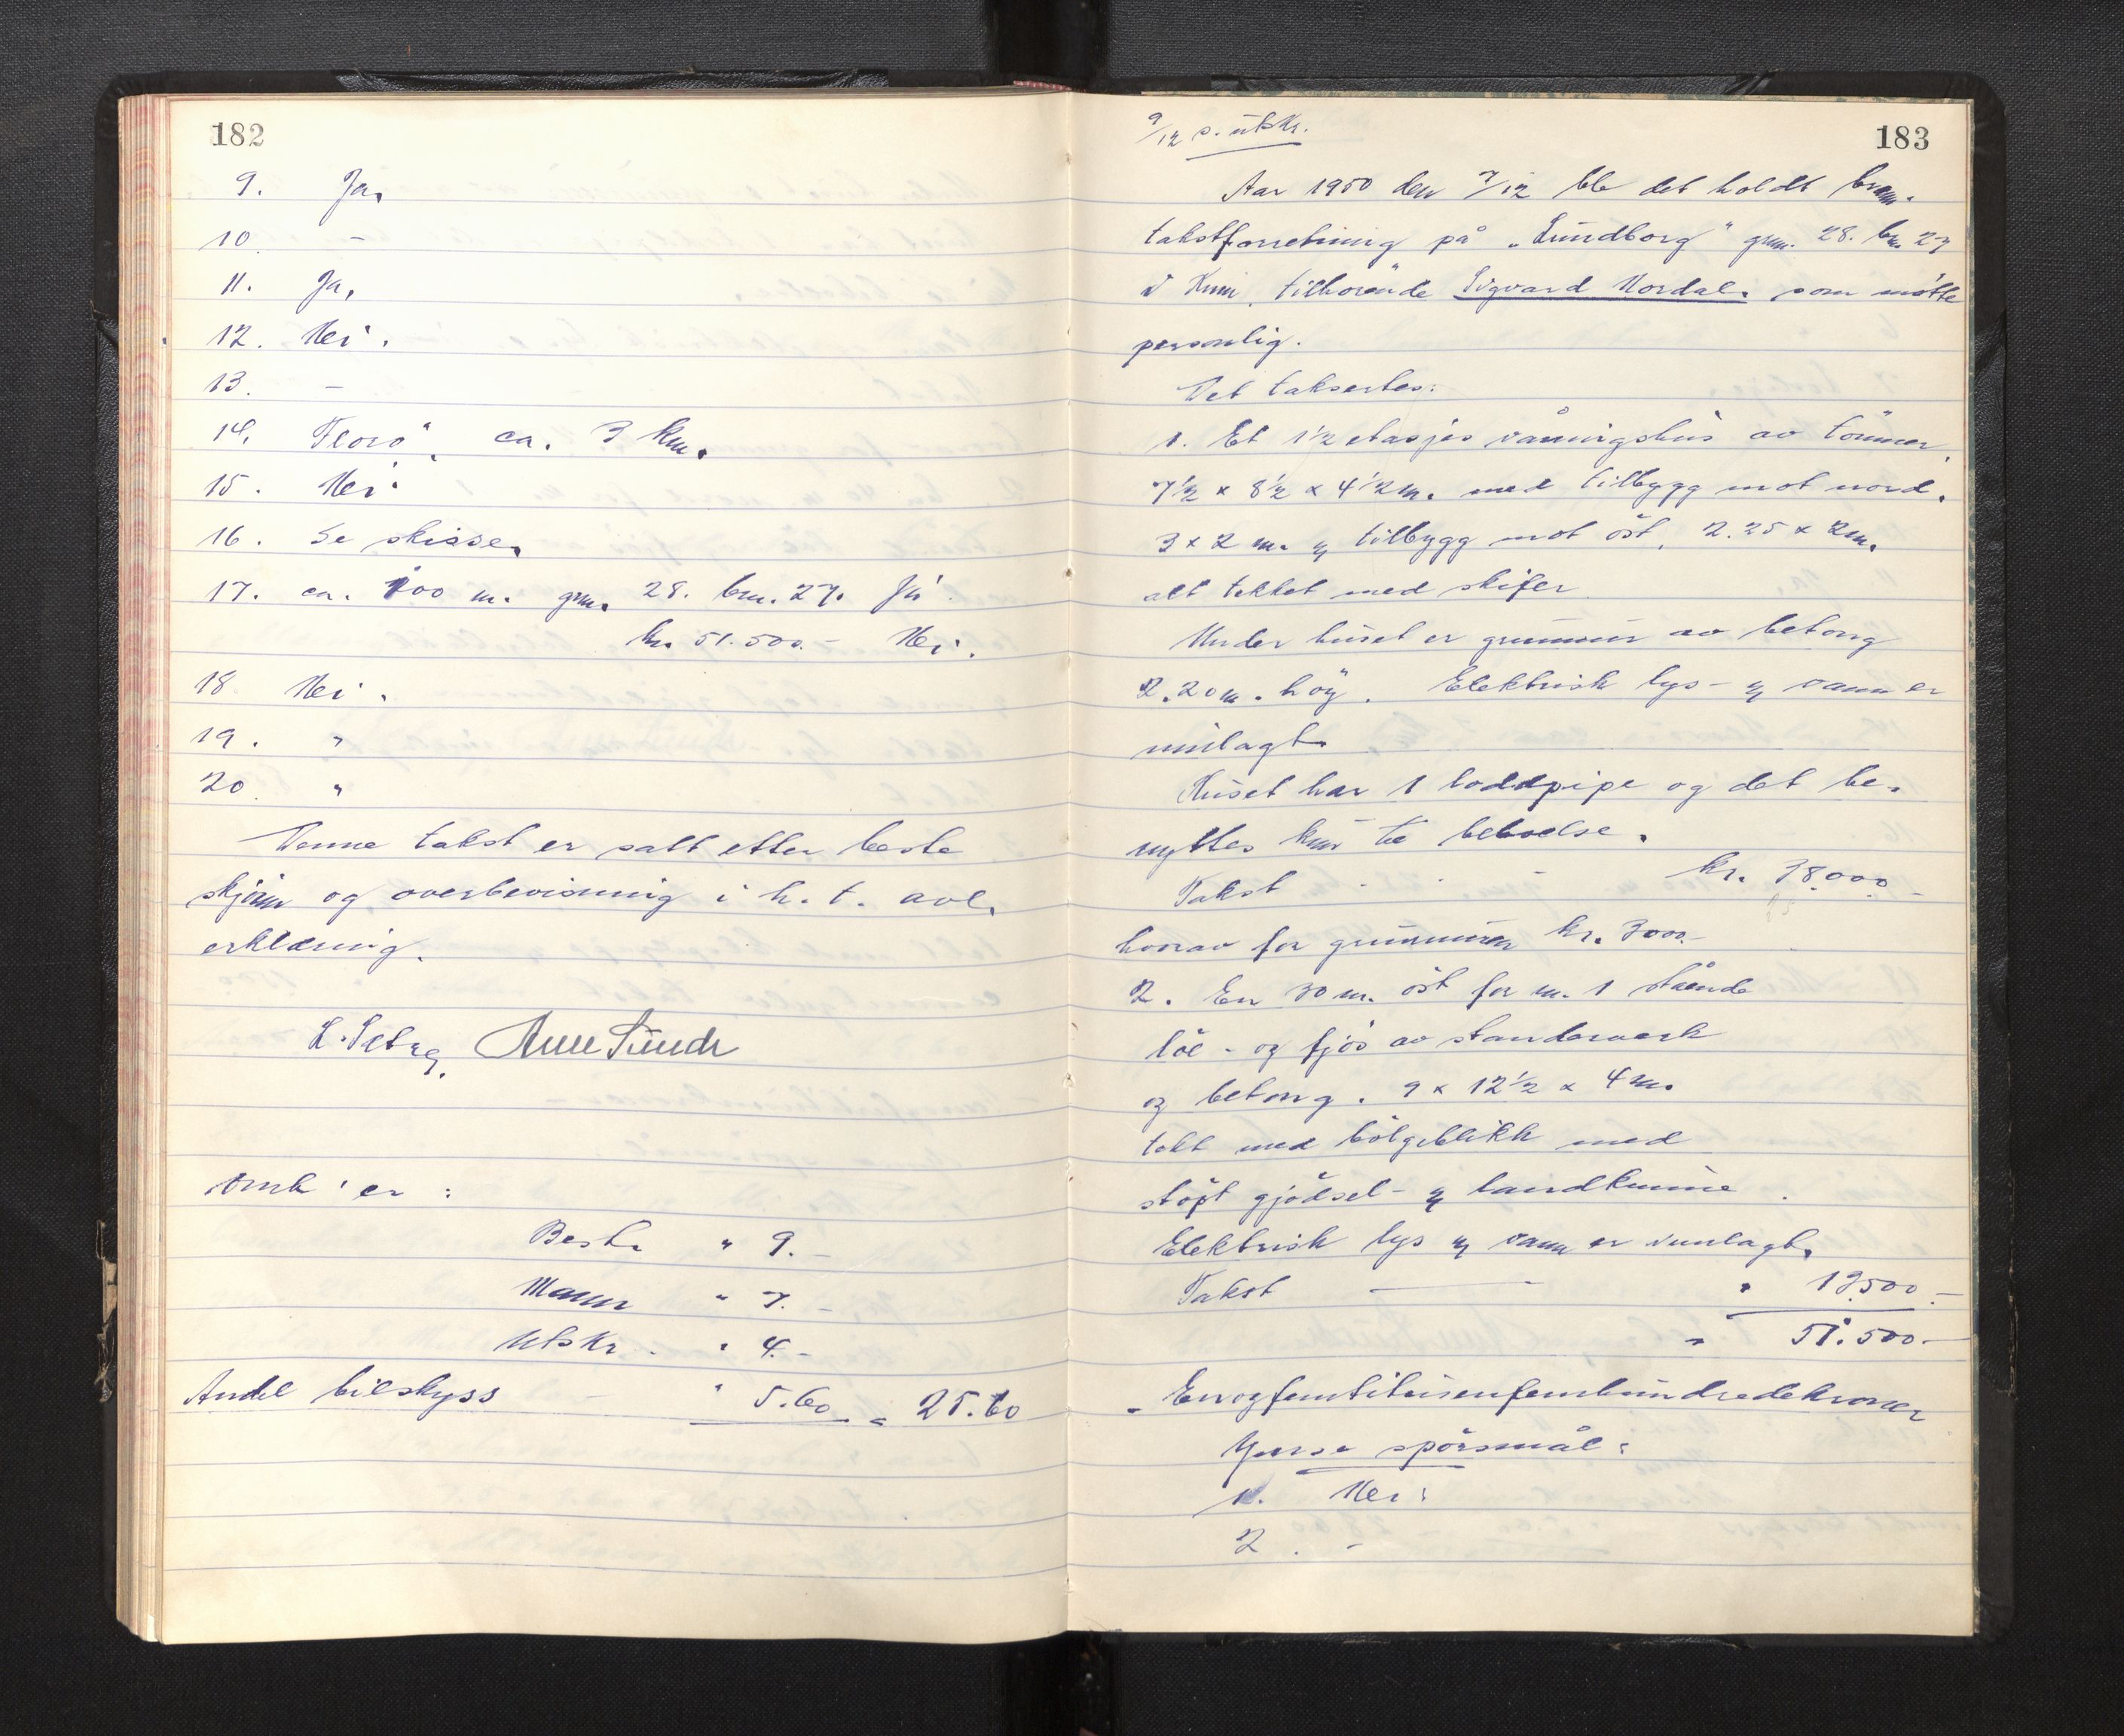 182
9. Ja.
10. -
11. Ja.
12. Nei.
13. -
14. Florö, ca. 3 km.
15. Nei.
16. Se skisse.
17. ca. 100 m. grnr. 28. bnr. 27. Ja.
kr. 51.500.- Nei.
18 Nei.
19. "
20. "
Denne takst er satt etter beste
skjønn og overbevisning i h. t. avl.
erklæring.
L. Setre, Arne Sunde
Omk'er:
Best. " 9.-
Mann " 7.-
Utskr. " 4.-
Andel bilskyss - " 5.60 = 25.60
183
9/12 s. utskr.
Aar 1950 den 7/12 ble det holdt brann-
takstforretning på "Lundborg" grnr. 28. bnr. 27
i Kinn, tilhörende Sigvard Nordal. som møtte
personlig.
Det taksertes:
1. Et 1 1/2 etasjes våningshus av tömmer,
7 1/2 x 8 1/2 x 4 1/2 m. med tilbygg mot nord.
3 x 2 m. og tilbygg mot öst, 2.25 x 2 m.
alt tekket med skifer.
Under huset er grunnmur av betong
2.20 m. höy. Elektrisk lys- og vann er
innlagt.
Huset har 1 loddpipe og det be-
nyttes kun til beboelse.
Takst - - - kr. 38.000.-
hvorav for grunnmuren kr. 3000.-
2. En 30 m. öst for nr. 1 stående
löe- og fjös av standerverk
og betong. 9 x 12 1/2 x 4 m.
tekt med bölgeblikk med
stöpt gjödsel- og landkumme.
Elektrisk lys og vann er innlagt.
Takst - - " 13.500.-
" 51.500.-
- Enogfemtitusenfemhundredekroner
Yourse spörsmål:
1. Nei.
2. -